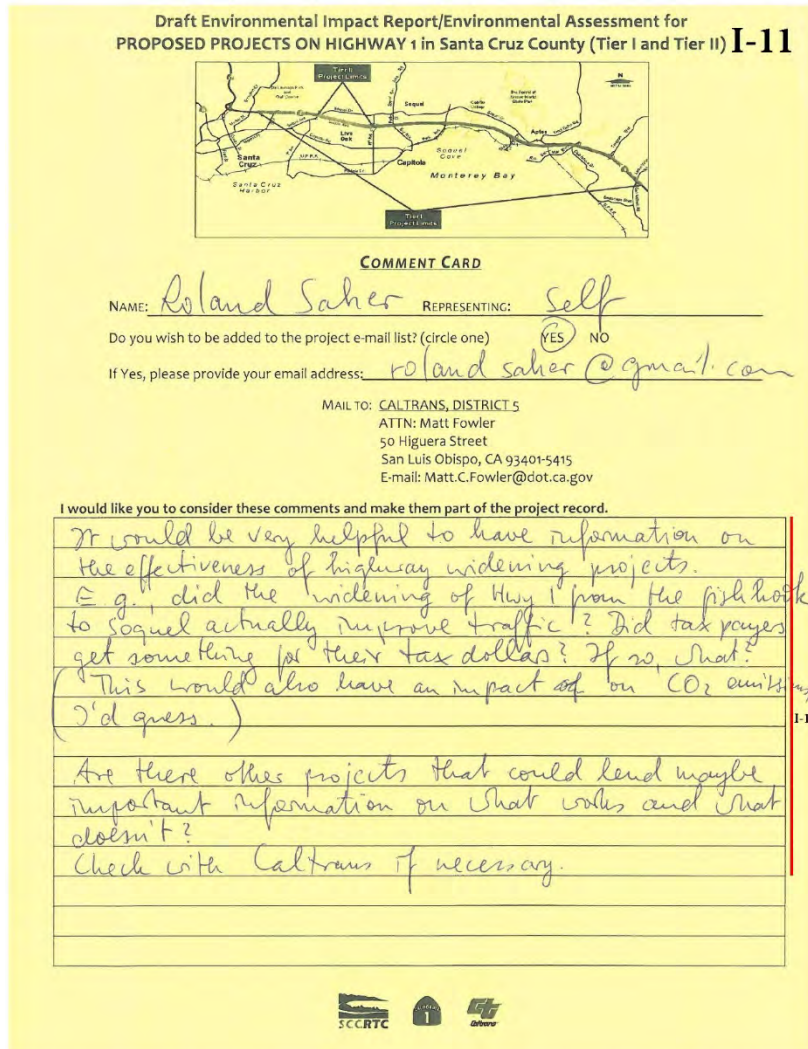 Draft Environmental Impact Report/Environmental Assessment for
PROPOSED PROJECTS ON HIGHWAY 1 in Santa Cruz County (Tier I and Tier II) I-11
Project Limits
N
Soquel
Live
Oak
Aptos
Santa
Cruz
Capitola
Soquel
Cove
Monterey Bay
Santa Cruz
Harbor
Project Limits
COMMENT CARD
NAME: Roland Saher REPRESENTING: Self
Do you wish to be added to the project e-mail list? (circle one) YES NO
If Yes, please provide your email address: roland saher @ gmail.com
MAIL TO: CALTRANS, DISTRICT 5
ATTN: Matt Fowler
50 Higuera Street
San Luis Obispo, CA 93401-5415
E-mail: Matt.C.Fowler@dot.ca.gov
I would like you to consider these comments and make them part of the project record.
It would be very helpful to have information on
the effectiveness of highway widening projects.
E.g., did the widening of Hwy 1 from the fishhook
to Soquel actually improve traffic? Did tax payers
get something for their tax dollars? If so, what?
(This would also have an impact on CO2 emissions,
I'd guess.)
Are there other projects that could lend maybe
important information on what works and what
doesn't?
Check with Caltrans if necessary.
SCCRTC
1
Caltrans